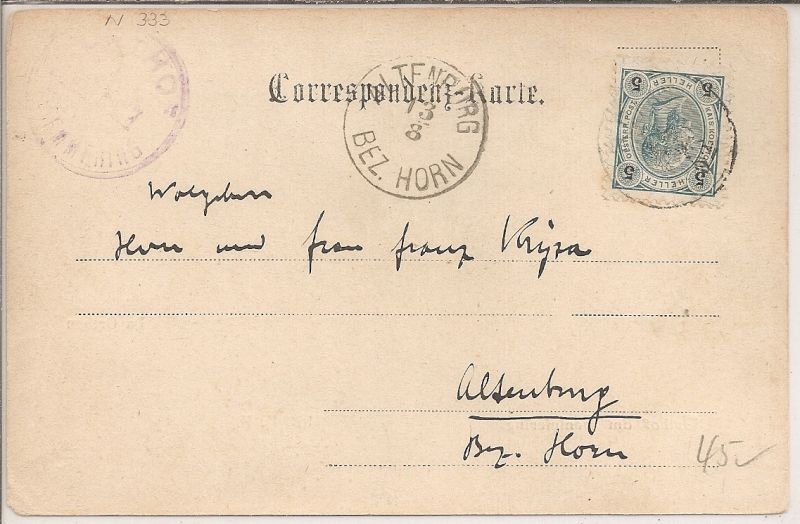 N 333
Correspondenz-Karte.
ALTENBURG
BEZ. HORN
5 5
HELLER
KAIS. KÖN.
OESTERR. POST
HELLER
5 5
Wolgeboren
Herrn und Frau Franz
Altenburg
Bez. Horn
45